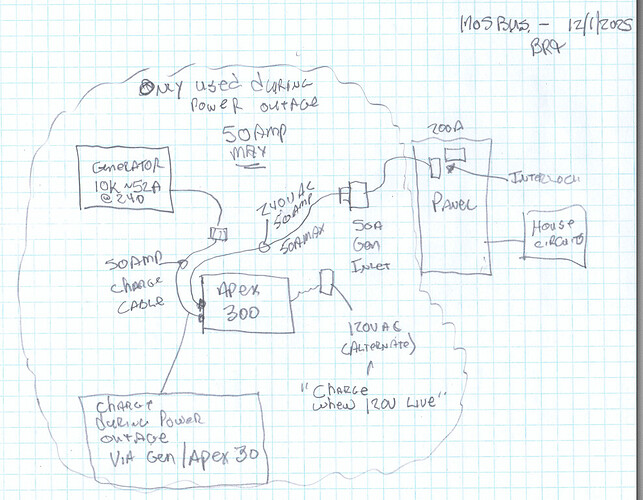 MOSBUS - 12/1/2025
BRQ
Only used during
Power outage
50AMP
MAX
200A
Generator
10K ~52A
@ 240
240VAC
50AMP
50A MAX
50A
Gen
Inlet
Interlock
Panel
House
Circuits
50AMP
Charge
Cable
Apex
300
120VAC
(Alternate)
"Charge
when 120V Live"
Charge
During Power
outage
VIA Gen/Apex 30